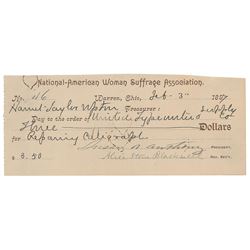 National-American Woman Suffrage Association.
No. 46 Warren, Ohio, Feb - 3 1897
Harriet Taylor Upton Treasurer:
Pay to the order of United Typewriter & Supply Co
Three Dollars
for Repairing Caligraph
$ 3.50 Susan B. Anthony PRESIDENT.
Alice Stone Blackwell REC. SECY.